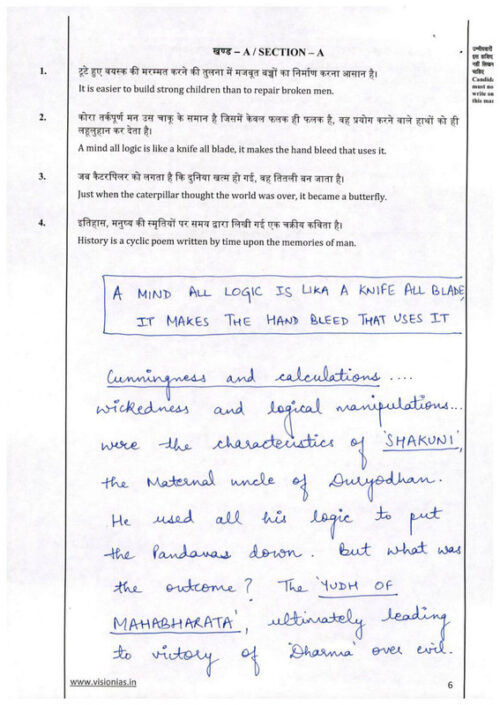 खण्ड – A / SECTION – A
उम्मीदवारों
इस हाशिए
नहीं लिखना
चाहिए
Candida
must no
write on
this mar
1. टूटे हुए वयस्क की मरम्मत करने की तुलना में मजबूत बच्चों का निर्माण करना आसान है।
It is easier to build strong children than to repair broken men.
2. कोरा तर्कपूर्ण मन उस चाकू के समान है जिसमें केवल फलक ही फलक है, वह प्रयोग करने वाले हाथों को ही
लहूलुहान कर देता है।
A mind all logic is like a knife all blade, it makes the hand bleed that uses it.
3. जब कैटरपिलर को लगता है कि दुनिया खत्म हो गई, वह तितली बन जाता है।
Just when the caterpillar thought the world was over, it became a butterfly.
4. इतिहास, मनुष्य की स्मृतियों पर समय द्वारा लिखी गई एक चक्रीय कविता है।
History is a cyclic poem written by time upon the memories of man.
A MIND ALL LOGIC IS LIKA A KNIFE ALL BLADE,
IT MAKES THE HAND BLEED THAT USES IT
Cunningness and calculations ....
wickedness and logical manipulations...
were the characteristics of 'SHAKUNI',
the Maternal uncle of Duryodhan.
He used all his logic to put
the Pandavas down. But what was
the outcome? The 'YUDH OF
MAHABHARATA', ultimately leading
to victory of 'Dharma' over evil.
www.visionias.in
6